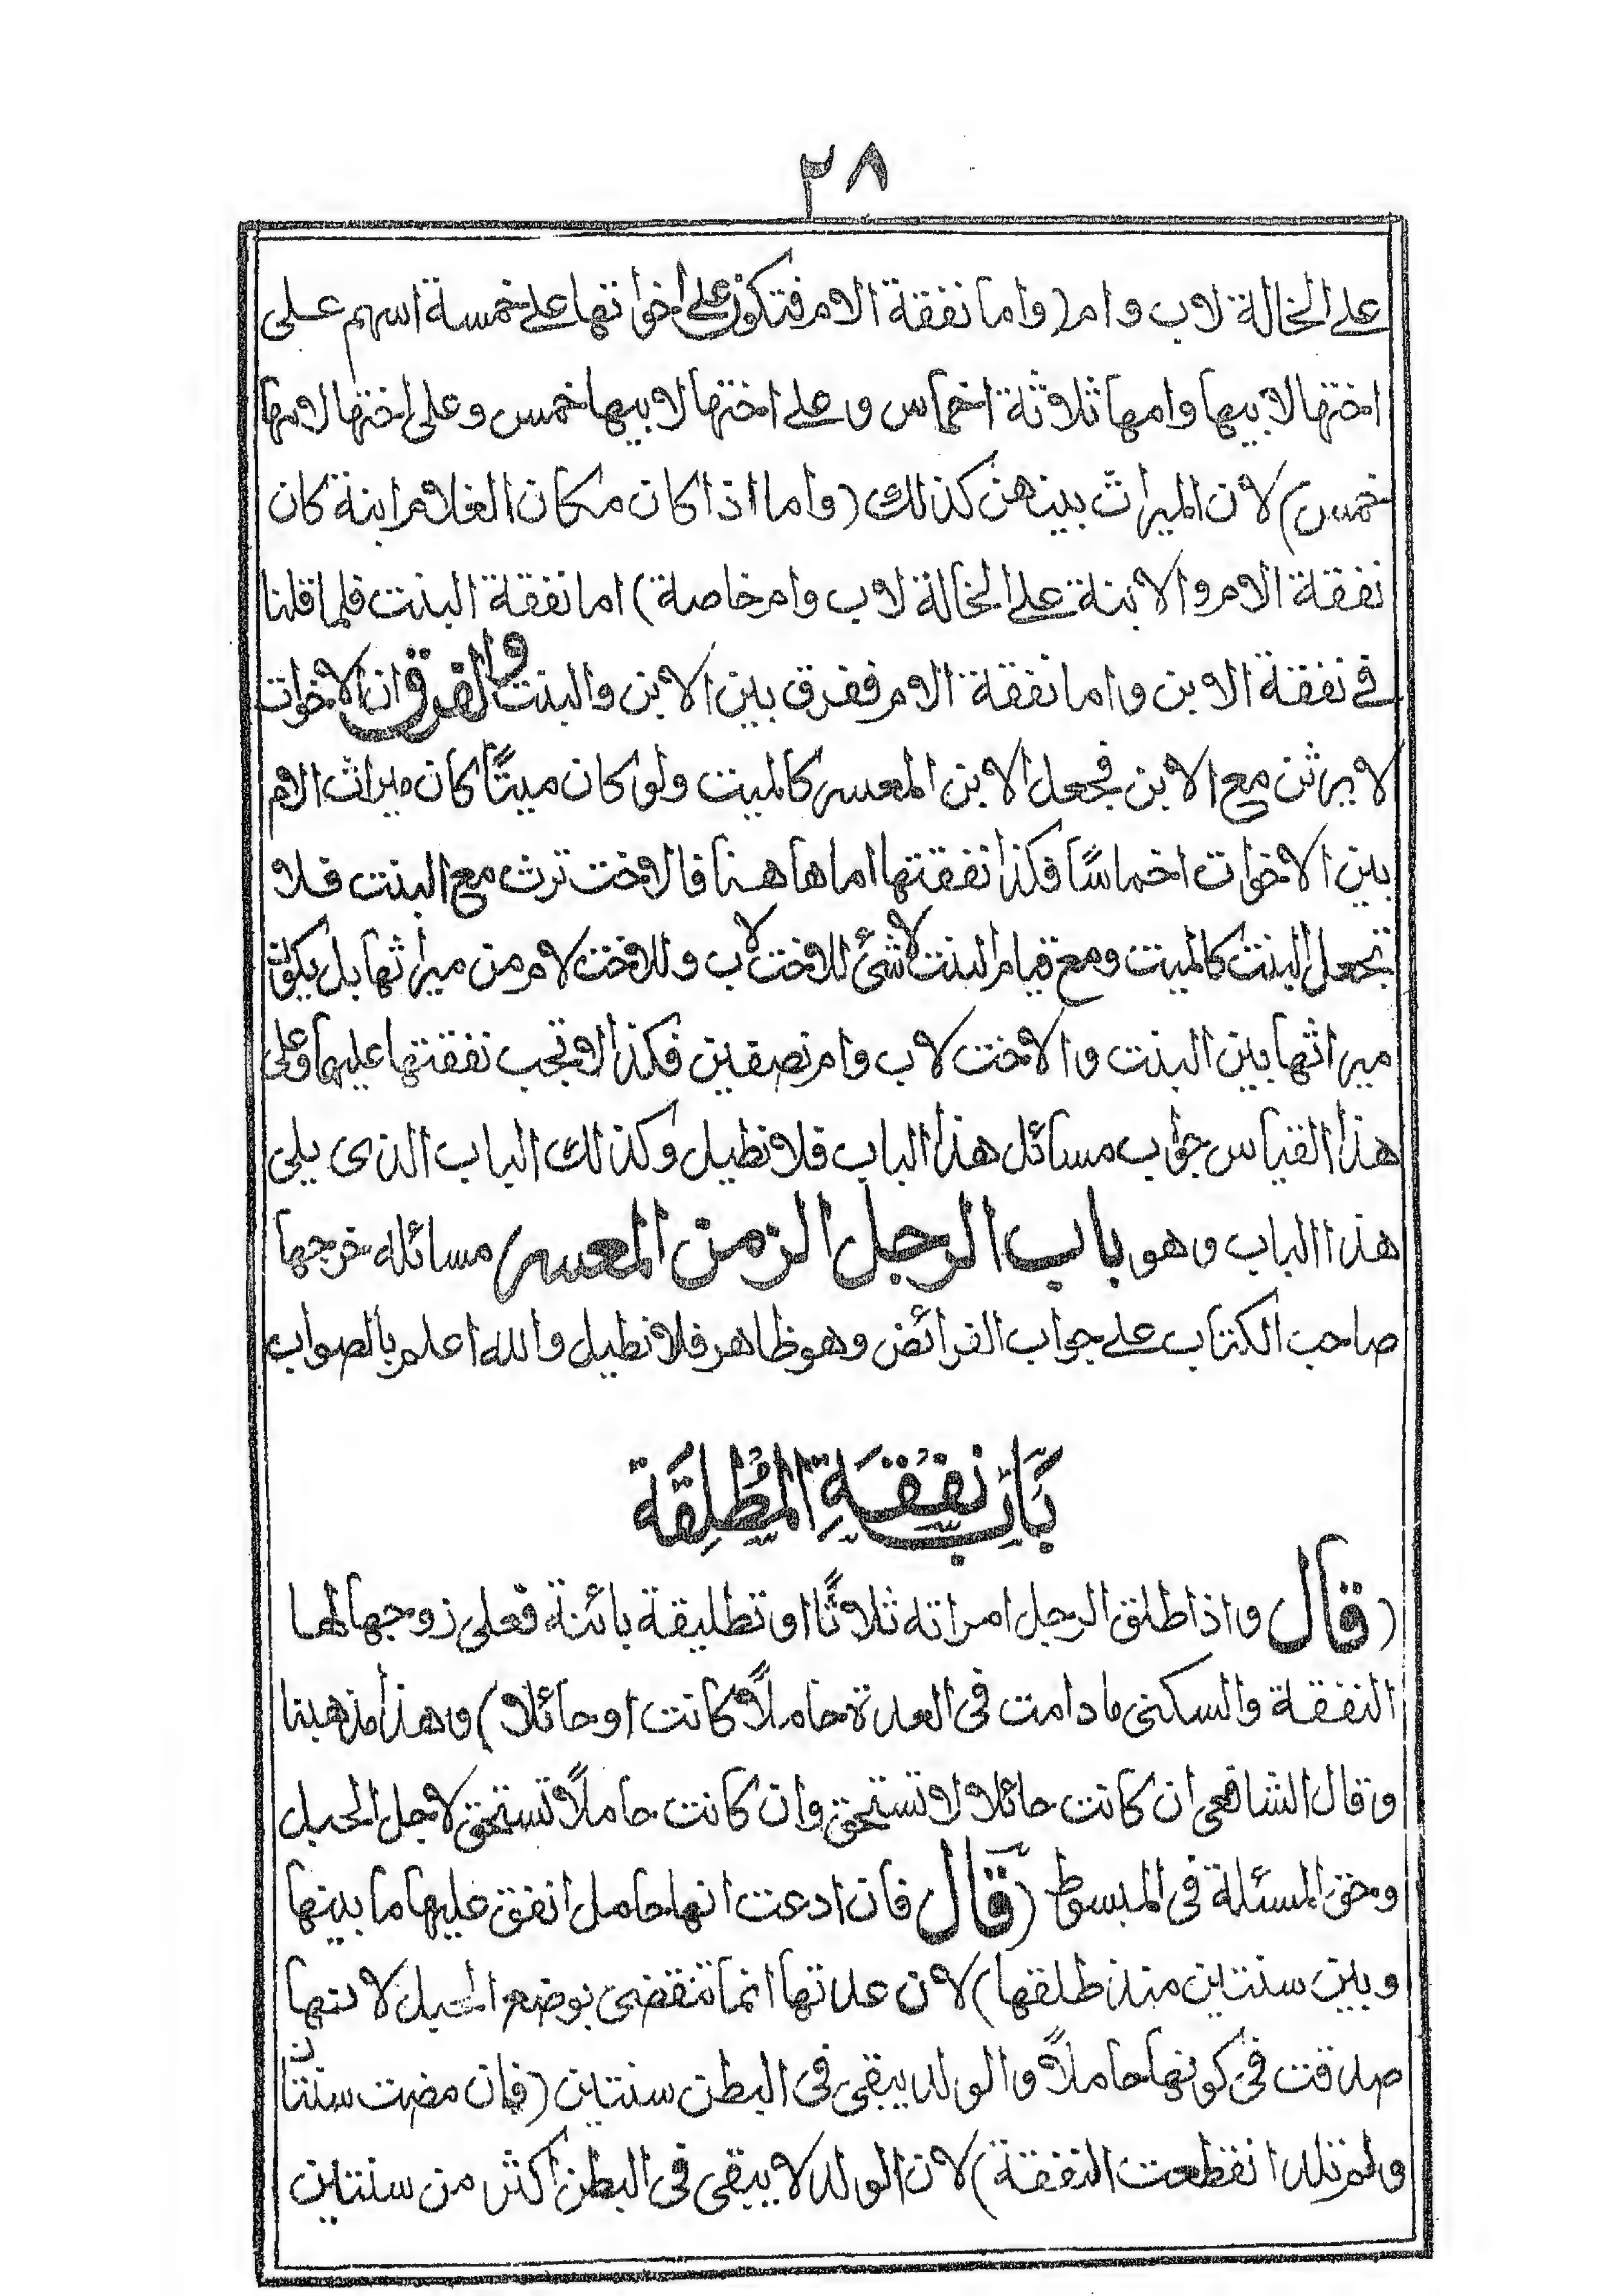 ٢٨
على الخالة لاب وام (واما نفقة الام فتكون على اخواتها على خمسة اسهم على
اختها لابيها وامها ثلاثة اخماس وعلى اختها لابيها خمس وعلى اختها لامها
خمس) لان الميراث بينهن كذلك (واما اذا كان مكان الغلام ابنة كان
نفقة الام والابنة على الخالة لاب وام خاصة) اما نفقة البنت فلما قلنا
فى نفقة الابن واما نفقة الام ففرق بين الابن والبنت والفرق ان الاخوات
لا يرثن مع الابن فجعل الابن المعسر كالميت ولو كان ميتًا كان ميراث الام
بين الاخوات اخماسًا فكذا نفقتها اما هاهنا فالاخت ترث مع البنت فلا
تجعل البنت كالميت ومع قيام البنت لا شئ للاخت لاب وللاخت لام من ميراثها بل يكون
ميراثها بين البنت والاخت لاب وام نصفين فكذا لا تجب نفقتها عليهما وعلى
هذا القياس جواب مسائل هذا الباب فلا نطيل وكذلك الباب الذى يلى
هذا الباب وهو باب الرجل الزمن المعسر مسائله خرجها
صاحب الكتاب على جواب الفرائض وهو ظاهر فلا نطيل والله اعلم بالصواب
بَابُ نَفَقَةِ المُطَلَّقَة
(قال واذا طلق الرجل امراته ثلاثًا او تطليقة بائنة فعلى زوجها لها
النفقة والسكنى ما دامت فى العدة حاملًا كانت او حائلا) وهذا مذهبنا
وقال الشافعى ان كانت حائلا لا تستحق وان كانت حاملًا تستحق لاجل الحبل
وحق المسئلة فى المبسوط (قال فان ادعت انها حامل انفق عليها ما بينها
وبين سنتين منذ طلقها) لان عدتها انما تنقضى بوضع الحبل لانها
صدقت فى كونها حاملًا والولد يبقى فى البطن سنتين (فان مضت سنتان
ولم تلد انقطعت النفقة) لان الولد لا يبقى فى البطن اكثر من سنتين